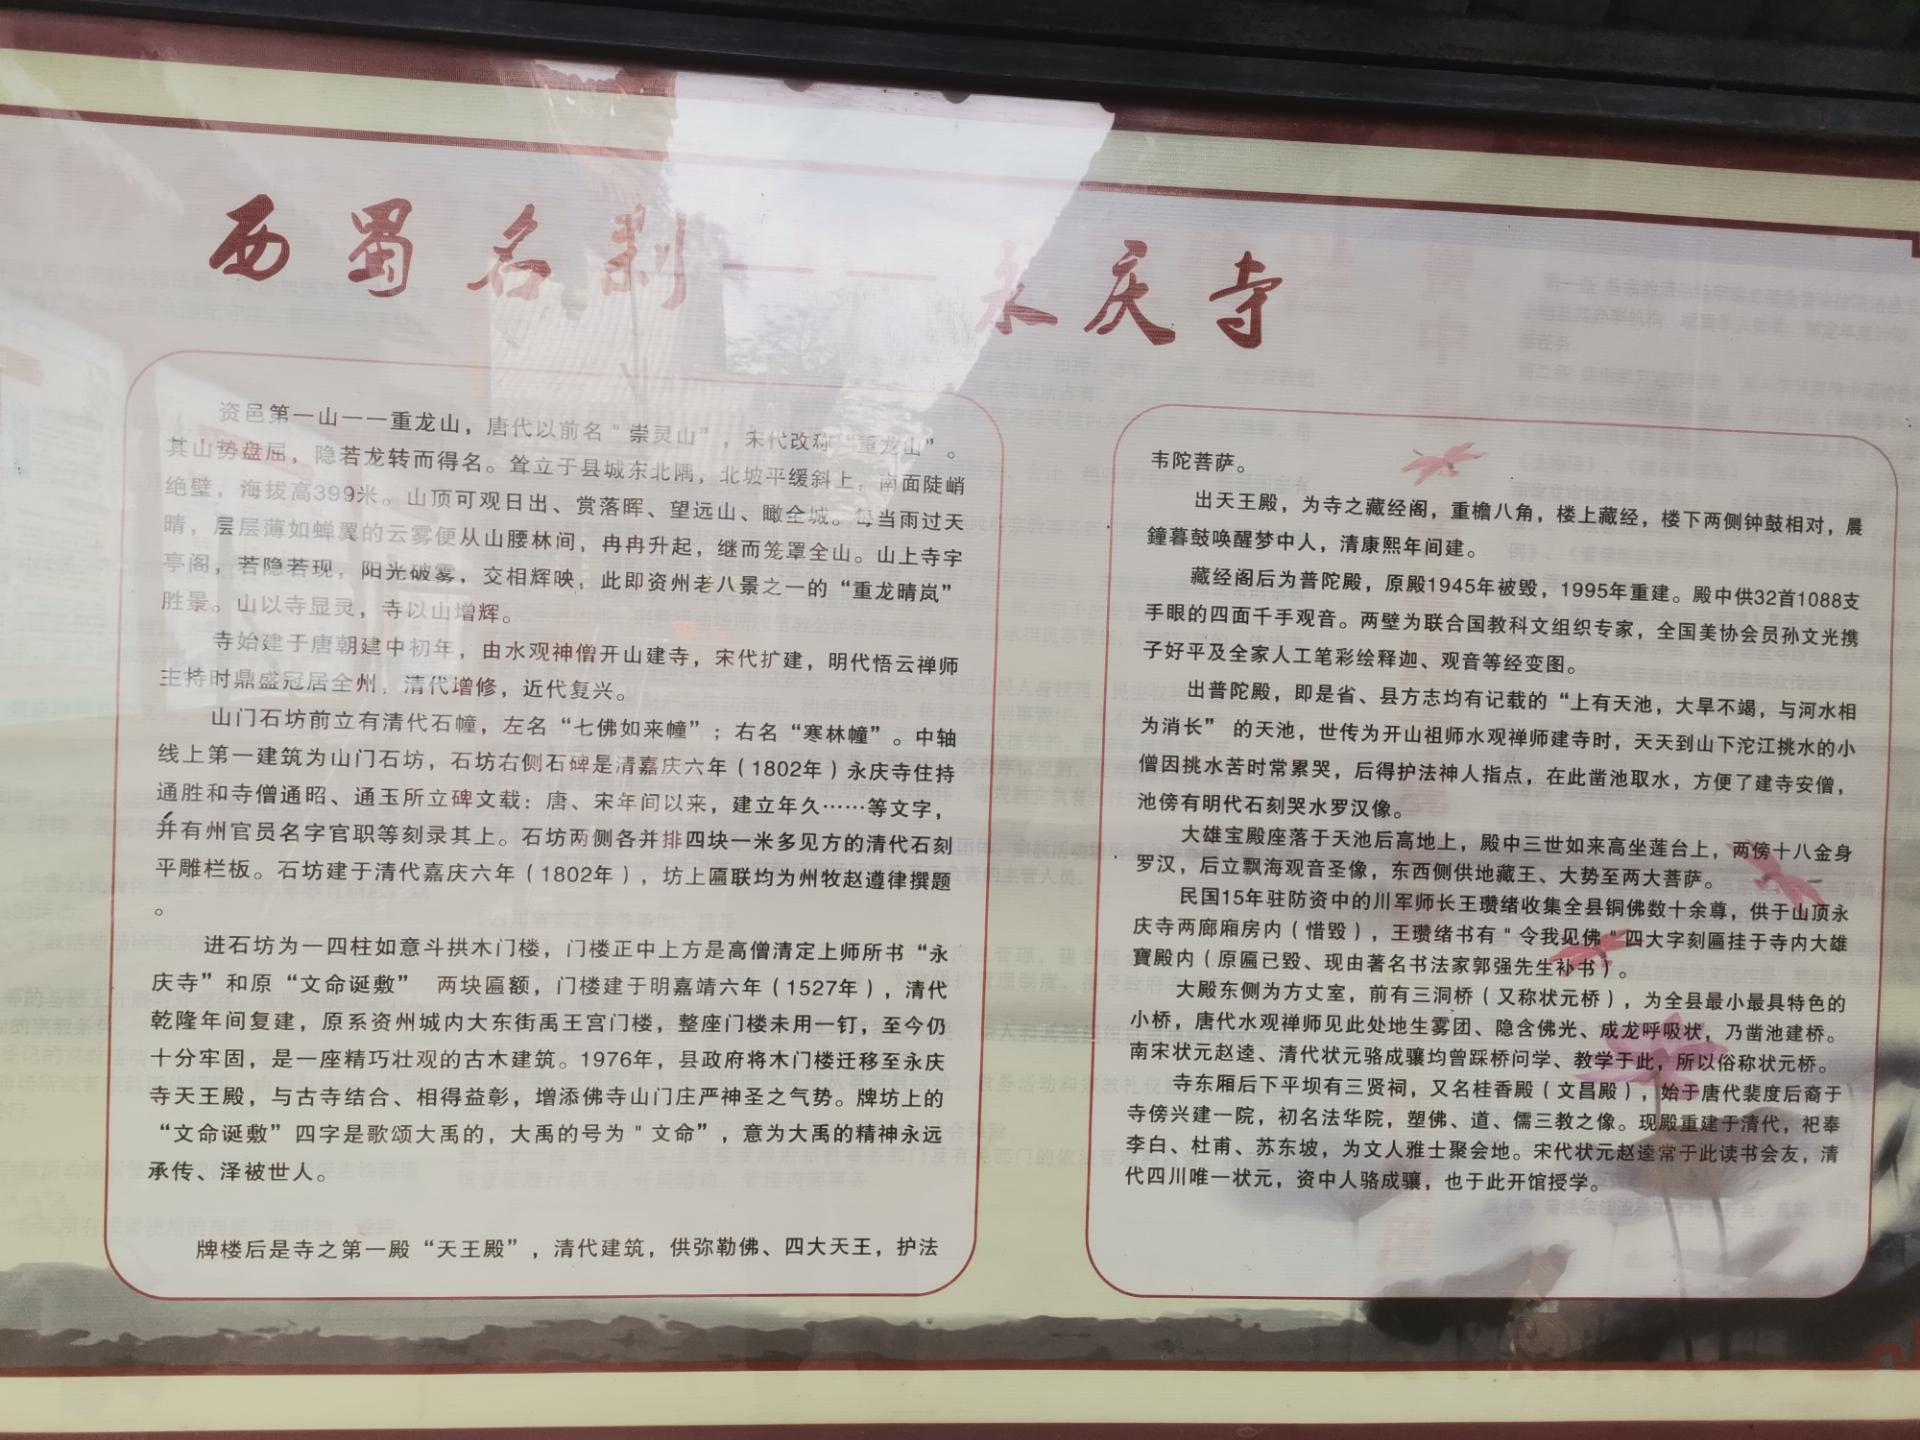 西蜀名刹——永庆寺
资邑第一山——重龙山，唐代以前名"崇灵山"，宋代改称“重龙山”。
其山势盘屈，隐若龙转而得名。耸立于县城东北隅，北坡平缓斜上，南面陡峭
绝壁，海拔高399米。山顶可观日出、赏落晖、望远山、瞰全城。每当雨过天
晴，层层薄如蝉翼的云雾便从山腰林间，冉冉升起，继而笼罩全山。山上寺宇
亭阁，若隐若现，阳光破雾，交相辉映，此即资州老八景之一的“重龙晴岚”
胜景。山以寺显灵，寺以山增辉。
寺始建于唐朝建中初年，由水观神僧开山建寺，宋代扩建，明代悟云禅师
主持时鼎盛冠居全州，清代增修，近代复兴。
山门石坊前立有清代石幢，左名“七佛如来幢”；右名“寒林幢”。中轴
线上第一建筑为山门石坊，石坊右侧石碑是清嘉庆六年（1802年）永庆寺住持
通胜和寺僧通昭、通玉所立碑文载：唐、宋年间以来，建立年久……等文字，
并有州官员名字官职等刻录其上。石坊两侧各并排四块一米多见方的清代石刻
平雕栏板。石坊建于清代嘉庆六年（1802年），坊上匾联均为州牧赵遵律撰题
。
进石坊为一四柱如意斗拱木门楼，门楼正中上方是高僧清定上师所书“永
庆寺”和原“文命诞敷” 两块匾额，门楼建于明嘉靖六年（1527年），清代
乾隆年间复建，原系资州城内大东街禹王宫门楼，整座门楼未用一钉，至今仍
十分牢固，是一座精巧壮观的古木建筑。1976年，县政府将木门楼迁移至永庆
寺天王殿，与古寺结合、相得益彰，增添佛寺山门庄严神圣之气势。牌坊上的
“文命诞敷”四字是歌颂大禹的，大禹的号为"文命”，意为大禹的精神永远
承传、泽被世人。
牌楼后是寺之第一殿“天王殿”，清代建筑，供弥勒佛、四大天王，护法
韦陀菩萨。
出天王殿，为寺之藏经阁，重檐八角，楼上藏经，楼下两侧钟鼓相对，晨
鐘暮鼓唤醒梦中人，清康熙年间建。
藏经阁后为普陀殿，原殿1945年被毁，1995年重建。殿中供32首1088支
手眼的四面千手观音。两壁为联合国教科文组织专家，全国美协会员孙文光携
子好平及全家人工笔彩绘释迦、观音等经变图。
出普陀殿，即是省、县方志均有记载的“上有天池，大旱不竭，与河水相
为消长” 的天池，世传为开山祖师水观禅师建寺时，天天到山下沱江挑水的小
僧因挑水苦时常累哭，后得护法神人指点，在此凿池取水，方便了建寺安僧，
池傍有明代石刻哭水罗汉像。
大雄宝殿座落于天池后高地上，殿中三世如来高坐莲台上，两傍十八金身
罗汉，后立飘海观音圣像，东西侧供地藏王、大势至两大菩萨。
民国15年驻防资中的川军师长王瓒绪收集全县铜佛数十余尊，供于山顶永
庆寺两廊厢房内（惜毁），王瓒绪书有"令我见佛"四大字刻匾挂于寺内大雄
寶殿内（原匾已毁、现由著名书法家郭强先生补书）。
大殿东侧为方丈室，前有三洞桥（又称状元桥），为全县最小最具特色的
小桥，唐代水观禅师见此处地生雾团、隐含佛光、成龙呼吸状，乃凿池建桥。
南宋状元赵逵、清代状元骆成骧均曾踩桥问学、教学于此，所以俗称状元桥。
寺东厢后下平坝有三贤祠，又名桂香殿（文昌殿），始于唐代裴度后裔于
寺傍兴建一院，初名法华院，塑佛、道、儒三教之像。现殿重建于清代，祀奉
李白、杜甫、苏东坡，为文人雅士聚会地。宋代状元赵逵常于此读书会友，清
代四川唯一状元，资中人骆成骧，也于此开馆授学。